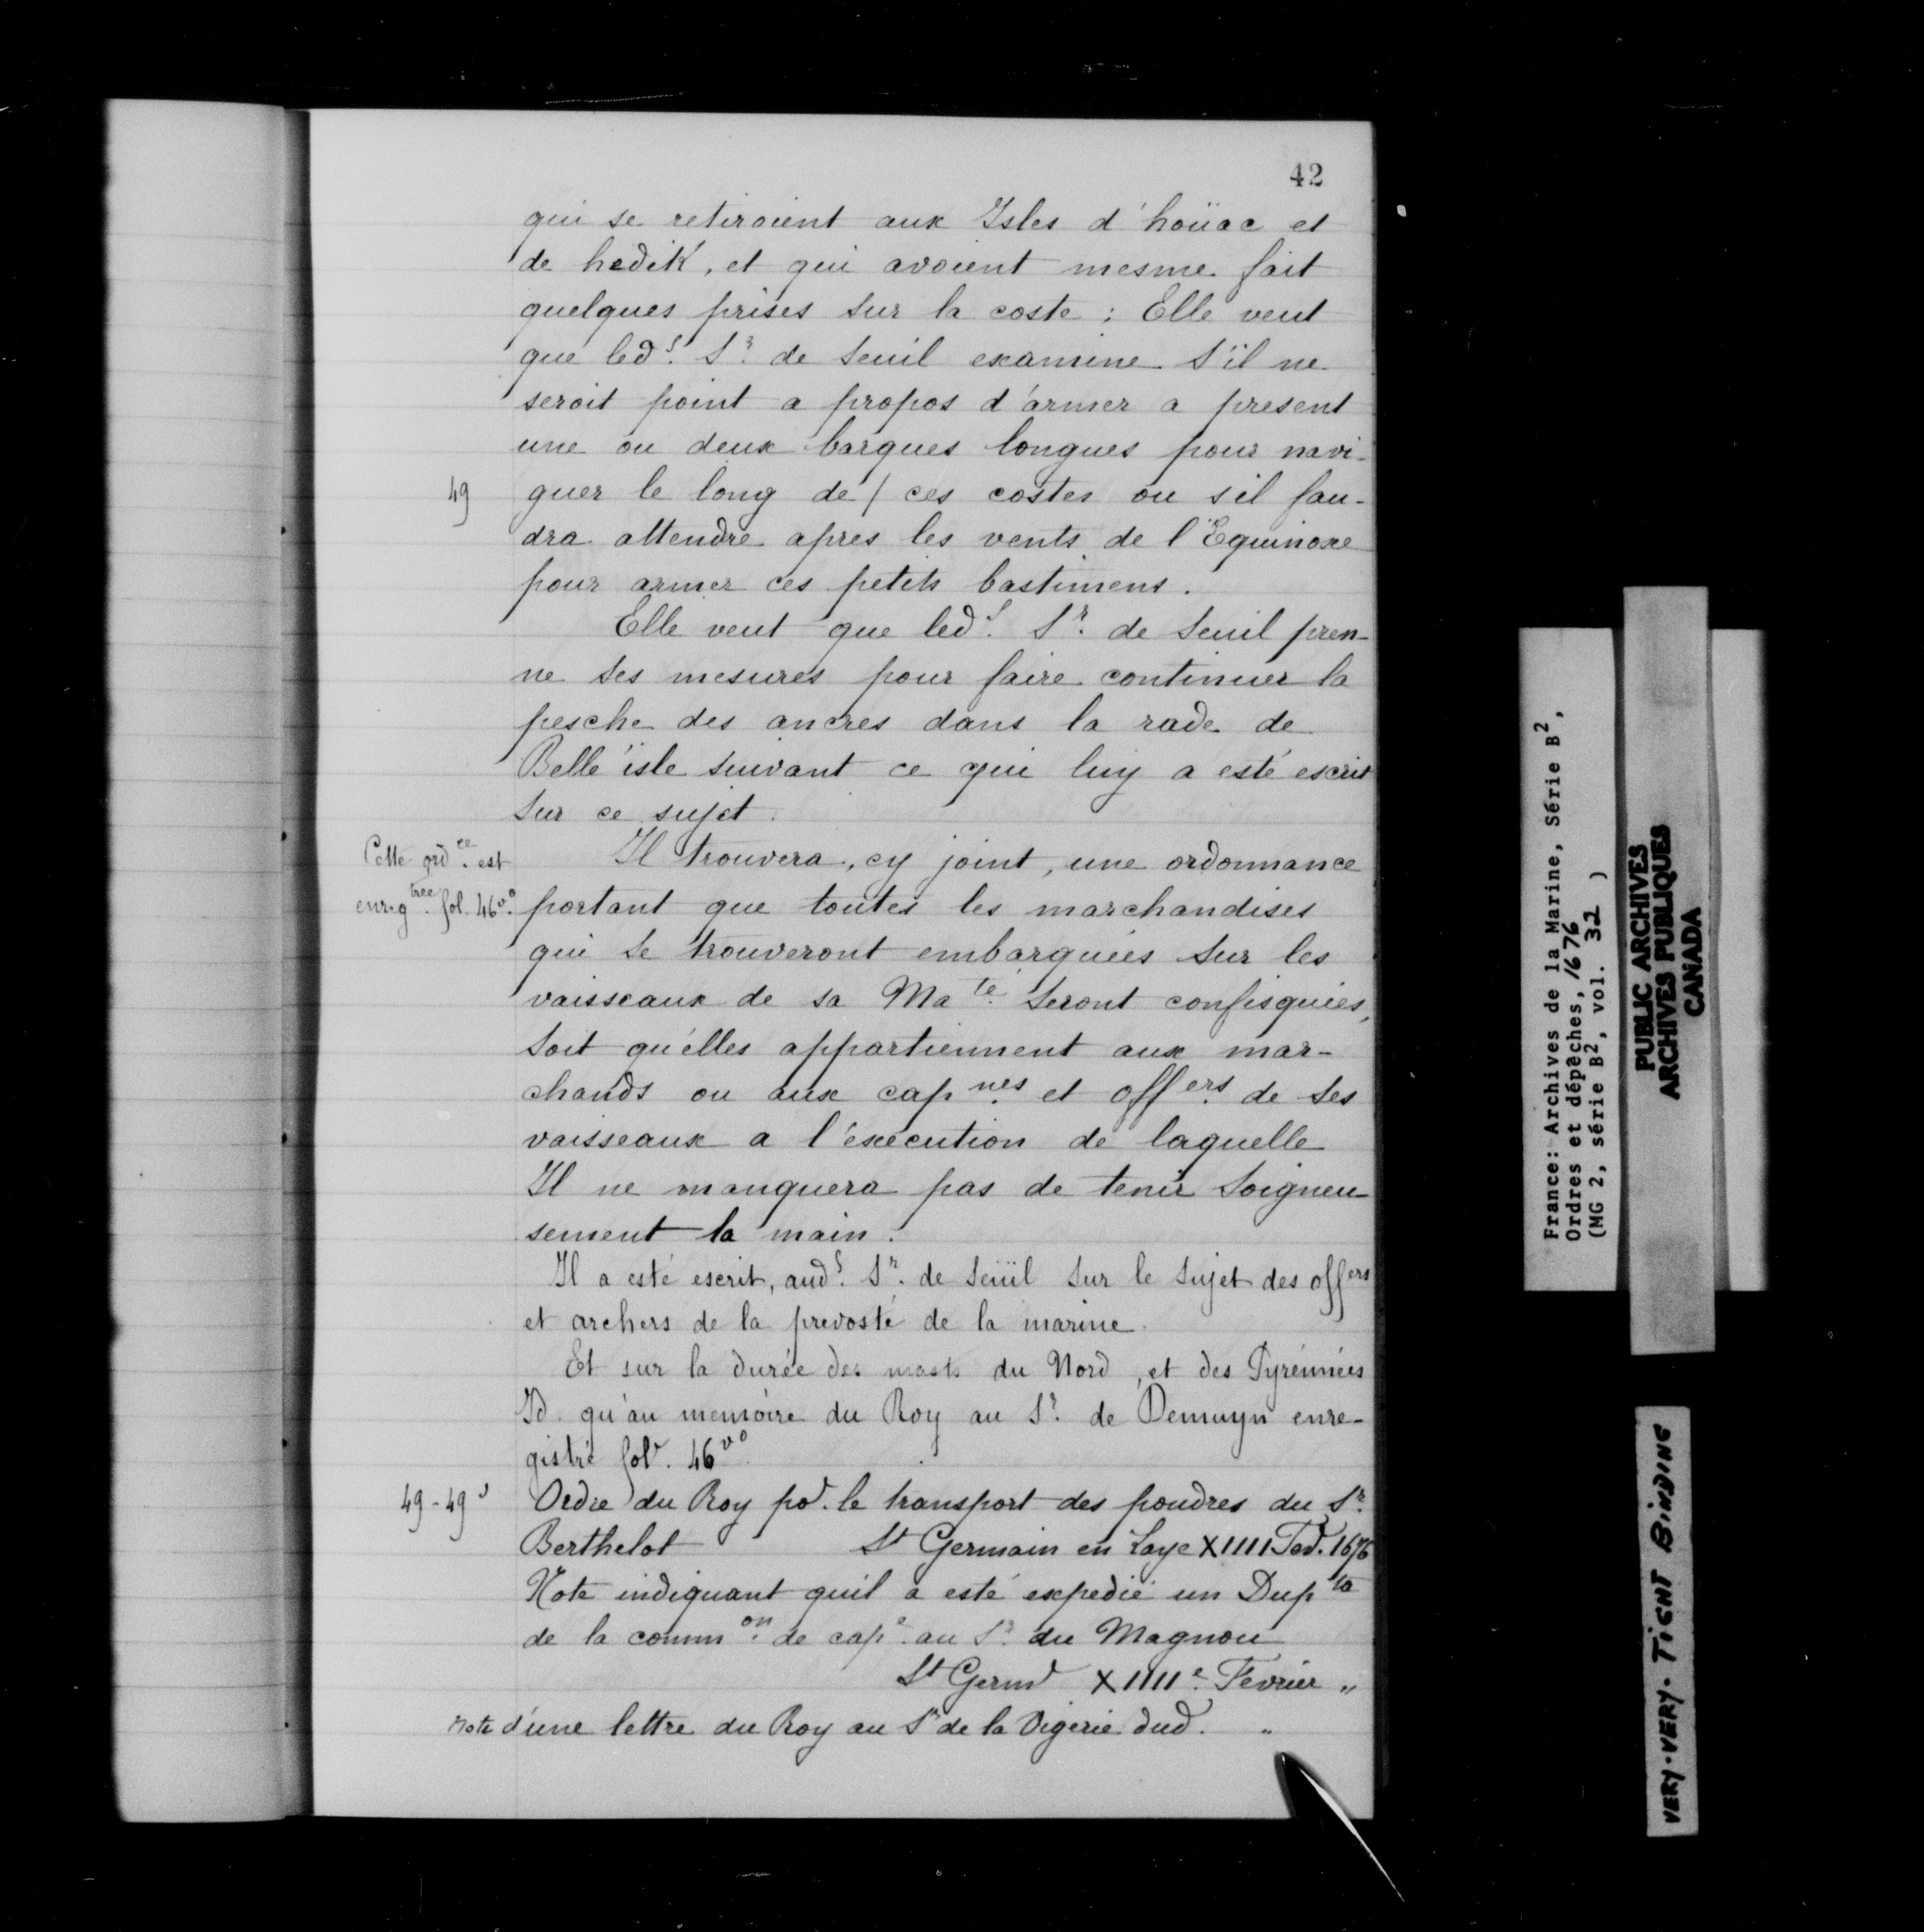 42
qui se retiroient aux Isles d'hoüac et
de hedik, et qui avoient mesme fait
quelques prises sur la coste ; Elle veut
que led.ᵗ Sʳ. de Seuil examine s'il ne
seroit point a propos d'armer a present
une ou deux barques longues pour navi-
49 guer le long de / ces costes ou s'il fau-
dra attendre apres les vents de l'Equinoxe
pour armer ces petits bastimens.
Elle veut que led.ᵗ Sʳ. de Seuil pren-
ne ses mesures pour faire continuer la
pesche des ancres dans la rade de
Belle isle suivant ce qui luy a esté escrit
sur ce sujet.
Cette ord.ᶜᵉ est
enrg.ᵗʳᵉᵉ fol. 46 vᵒ.
Il trouvera, cy joint, une ordonnance
portant que toutes les marchandises
qui se trouveront embarquées sur les
vaisseaux de sa Ma.ᵗᵉ seront confisquées,
soit qu'elles appartiennent aux mar-
chands ou aux cap.ⁿᵉˢ et off.ᵉʳˢ de ses
vaisseaux a l'exécution de laquelle
Il ne manquera pas de tenir soigneu
sement la main.
Il a esté escrit, aud.ᵗ Sʳ. de Seüil sur le sujet des offᵉʳˢ
et archers de la prevosté de la marine.
Et sur la durée des masts du Nord, et des Pyrénnées
Id. qu'au memoire du Roy au Sʳ. de Demuyn enre-
gistré folᵒ. 46 vᵒ
49-49ᵛ Ordre du Roy poʳ. le transport des poudres du Sʳ.
Berthelot St Germain en Laye XIIII Fev. 1676
Note indiquant quil a esté expedié un Dupᵗᵃ
de la comm.ᵒⁿ de capᵉ. au Sʳ. du Magnou
St Germⁿ XIIIIᵉ. Fevrier "
Note d'une lettre du Roy au Sʳ de la Vigerie dud. "
France: Archives de la Marine, Série B²,
Ordres et dépêches, 1676
(MG 2, série B², vol. 32 )
PUBLIC ARCHIVES
ARCHIVES PUBLIQUES
CANADA
VERY-VERY-TIGHT BINDING